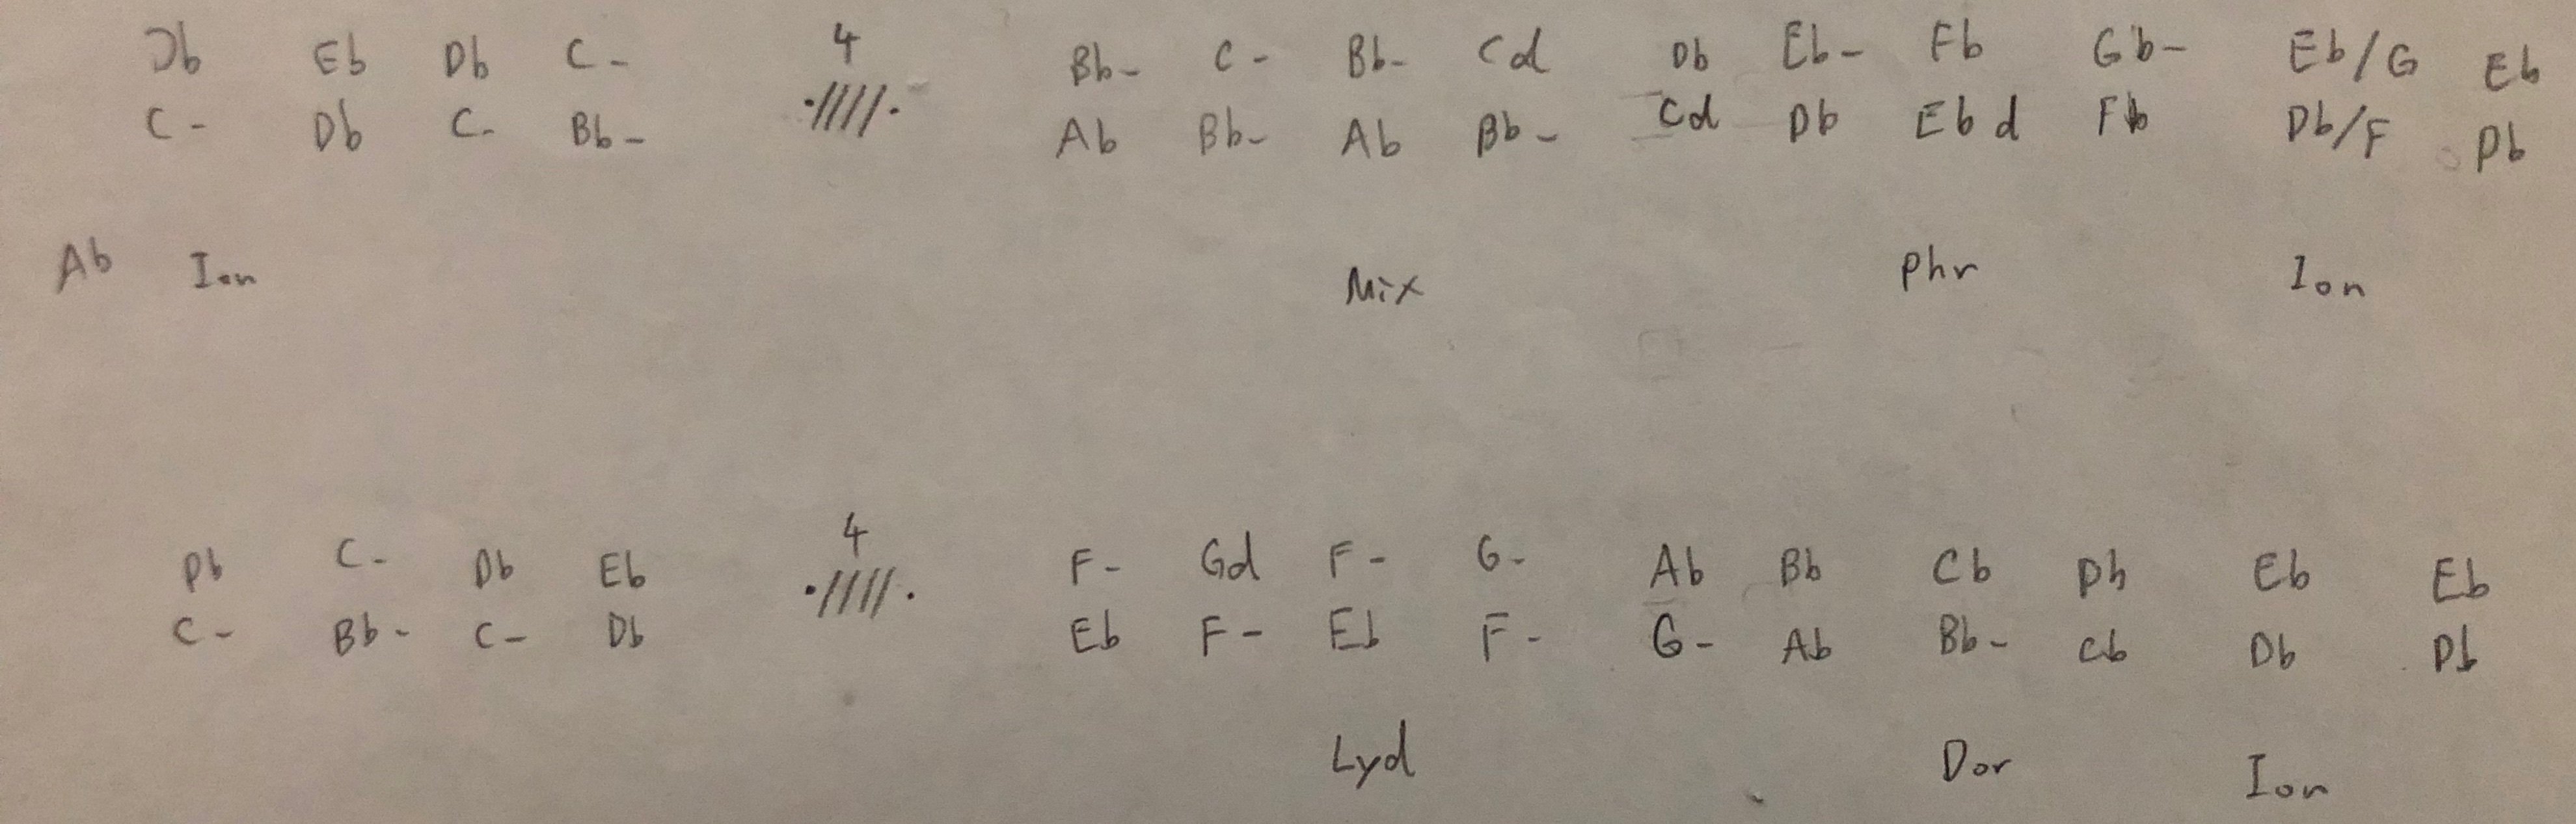 Db Eb Db C- 4 Bb- C- Bb- Cd Db Eb- Fb Gb- Eb/G Eb
C- Db C- Bb- ·////· Ab Bb- Ab Bb- Cd Db Ebd Fb Db/F Db
Ab Ion Mix Phr Ion
Db C- Db Eb 4 F- Gd F- G- Ab Bb Cb Db Eb Eb
C- Bb- C- Db ·////· Eb F- Eb F- G- Ab Bb- Cb Db Db
Lyd Dor Ion